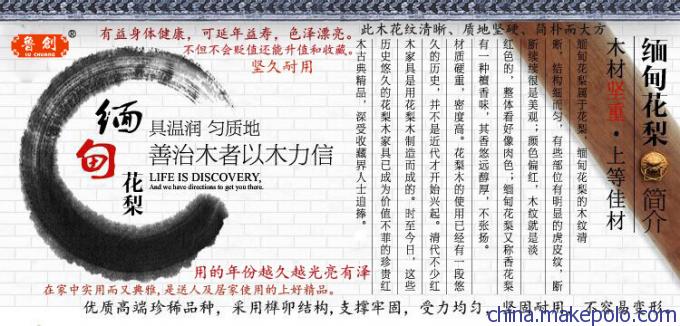 魯創®
LU CHUANG
有益身体健康，可延年益寿，色泽漂亮。
不但不会贬值还能升值和收藏。
坚久耐用
此木花纹清晰、质地坚硬、简朴而大方
缅甸花梨
简介
木材坚重·上等佳材
缅甸花梨属于花梨。缅甸花梨的木纹清
晰，结构细而匀，有些部位有明显的虎皮纹，断
断续续很是美观；颜色偏红，木纹就是淡
红色的，整体看好像肉色；缅甸花梨又称香花梨
有一种檀香味，其香悠远醇厚，不张扬。
材质硬重，密度高。花梨木的使用已经有一段悠
久的历史，并不是近代才开始兴起。清代不少红
木家具是用花梨木制造而成的。时至今日，这些
历史悠久的花梨木家具已成为价值不菲的珍贵红
木古典精品，深受收藏界人士追捧。
缅甸
花梨
具温润 匀质地
善治木者以木力信
LIFE IS DISCOVERY,
And we have directions to get you there.
用的年份越久越光亮有泽
在家中实用而又典雅,是送人及居家使用的上好精品。
优质高端珍稀品种，采用榫卯结构,支撑牢固，受力均匀，坚固耐用，不容易变形
china.makepolo.com